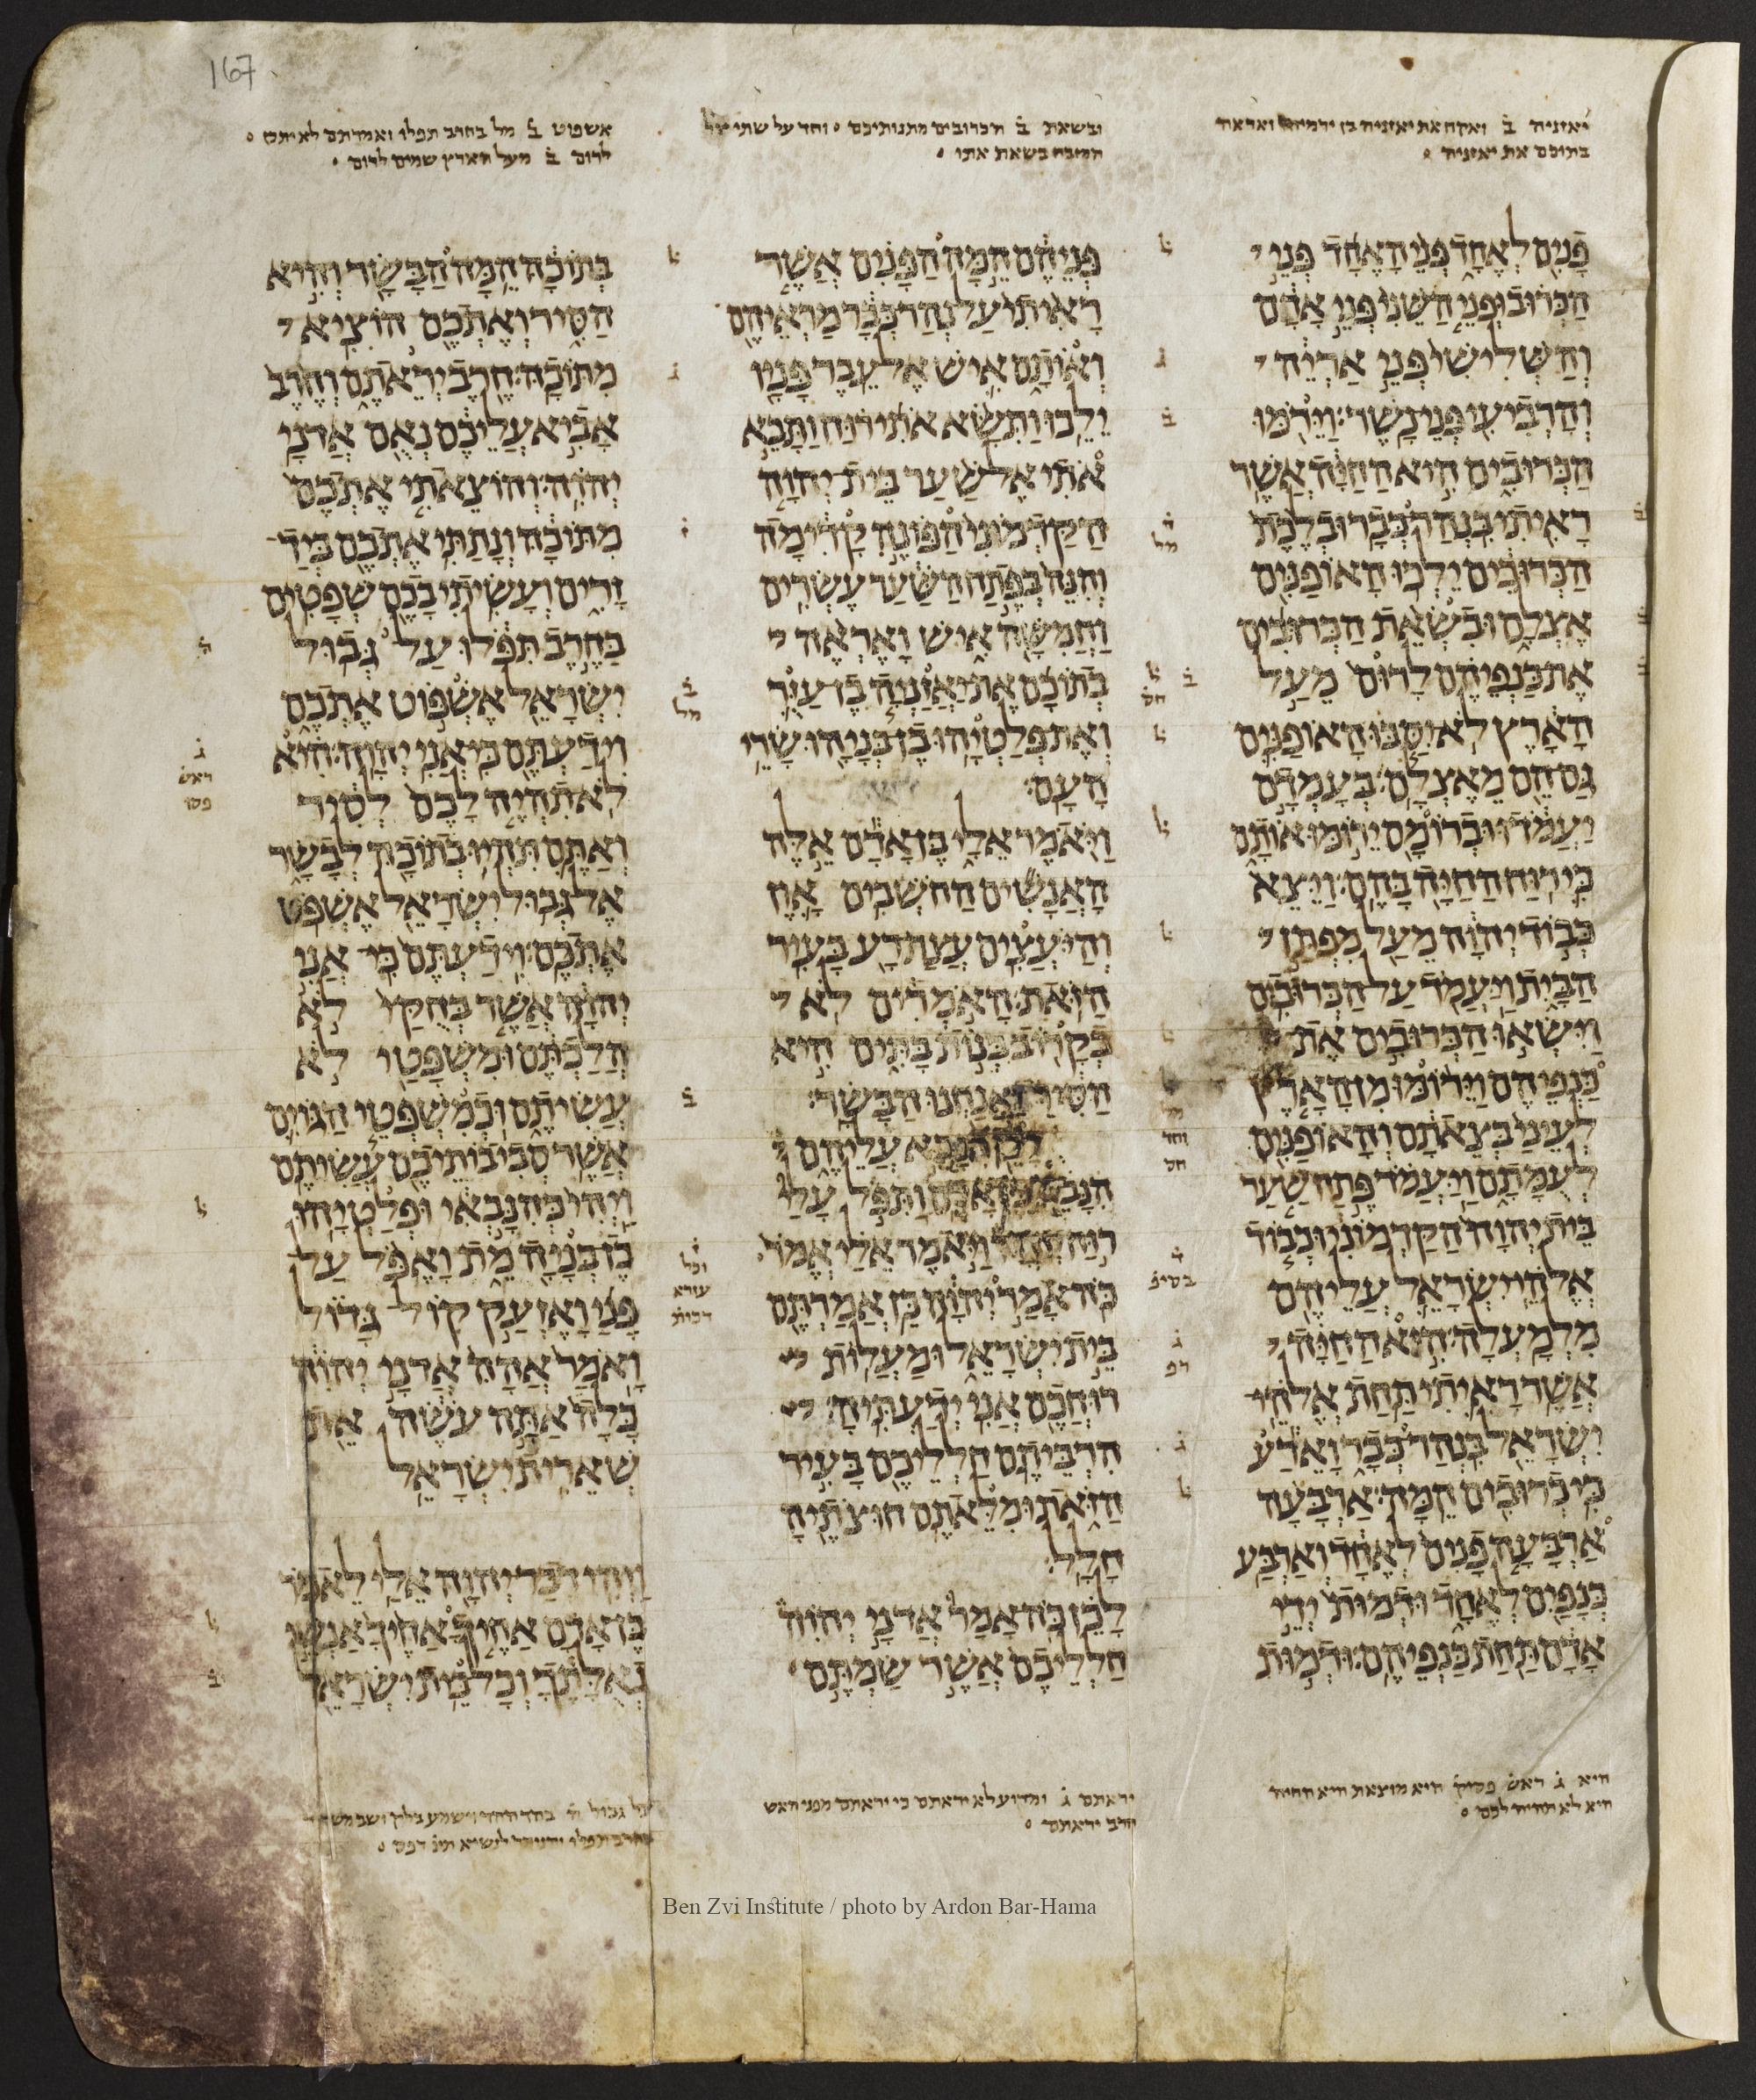 167
יאזניה ב ואקח את יאזניה בן ירמיהו ואראה
בתוכם את יאזניה
ובשאת ב הכרובים מתנותיכם וחד על שתי
המזבח בשאת אתו
אשפוט ב מל בחרב תפלו ואמרתם לא יתכן
לרום ב מעל הארץ שמים לרום
פנים לאחד פני האחד פני
הכרוב ופני השני פני אדם
והשלישי פני אריה
והרביעי פני נשר׃ וירמו
הכרובים היא החיה אשר
ראיתי בנהר כבר׃ ובלכת
הכרובים ילכו האופנים
אצלם ובשאת הכרובים
את כנפיהם לרום מעל
הארץ לא יסבו האופנים
גם הם מאצלם׃ בעמדם
יעמדו וברומם ירומו אותם
כי רוח החיה בהם׃ ויצא
כבוד יהוה מעל מפתן
הבית ויעמד על הכרובים׃
וישאו הכרובים את
כנפיהם וירומו מן הארץ
לעיני בצאתם והאופנים
לעמתם ויעמד פתח שער
בית יהוה הקדמוני וכבוד
אלהי ישראל עליהם
מלמעלה׃ היא החיה
אשר ראיתי תחת אלהי
ישראל בנהר כבר ואדע
כי כרובים המה׃ ארבעה
ארבעה פנים לאחד וארבע
כנפים לאחד ודמות ידי
אדם תחת כנפיהם׃ ודמות
פניהם המה הפנים אשר
ראיתי על נהר כבר מראיהם
ואותם איש אל עבר פניו
ילכו׃ ותשא אתי רוח ותבא
אתי אל שער בית יהוה
הקדמוני הפונה קדימה
והנה בפתח השער עשרים
וחמשה איש ואראה
בתוכם את יאזניה בן עזר
ואת פלטיהו בן בניהו שרי
העם׃
ויאמר אלי בן אדם אלה
האנשים החשבים און
והיעצים עצת רע בעיר
הזאת׃ האמרים לא
בקרוב בנות בתים היא
הסיר ואנחנו הבשר׃
לכן הנבא עליהם
הנבא בן אדם׃ ותפל עלי
רוח יהוה ויאמר אלי אמר
כה אמר יהוה כן אמרתם
בית ישראל ומעלות
רוחכם אני ידעתיה׃
הרביתם חלליכם בעיר
הזאת ומלאתם חוצתיה
חלל׃
לכן כה אמר אדני יהוה
חלליכם אשר שמתם
בתוכה המה הבשר והיא
הסיר ואתכם הוציא
מתוכה׃ חרב יראתם וחרב
אביא עליכם נאם אדני
יהוה׃ והוצאתי אתכם
מתוכה ונתתי אתכם ביד
זרים ועשיתי בכם שפטים׃
בחרב תפלו על גבול
ישראל אשפוט אתכם
וידעתם כי אני יהוה׃ היא
לא תהיה לכם לסיר
ואתם תהיו בתוכה לבשר
אל גבול ישראל אשפט
אתכם׃ וידעתם כי אני
יהוה אשר בחקי לא
הלכתם ומשפטי לא
עשיתם וכמשפטי הגוים
אשר סביבותיכם עשיתם׃
ויהי כהנבאי ופלטיהו
בן בניה מת ואפל על
פני ואזעק קול גדול
ואמר אהה אדני יהוה
כלה אתה עשה את
שארית ישראל
ויהי דבר יהוה אלי לאמר
בן אדם אחיך אחיך אנשי
גאלתך וכל בית ישראל
היא ג ראש פסוק היא מוצאת היא החיה
היא לא תהיה לכם
יראתם ג ומדוע לא יראתם כי יראתם מפני האש
חרב יראתם
Ben Zvi Institute / photo by Ardon Bar-Hama